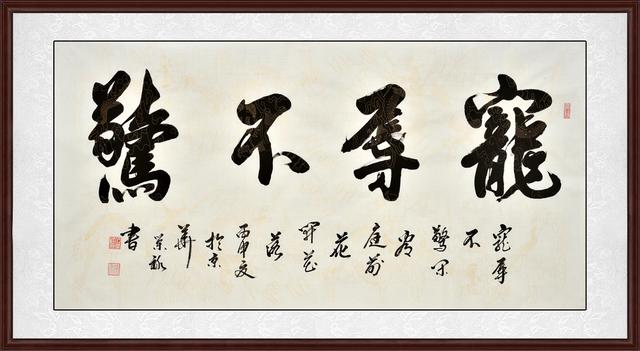 寵辱不驚
寵辱
不
驚閒
看
庭前
花
開花
落
丙申夏
於京
華
書